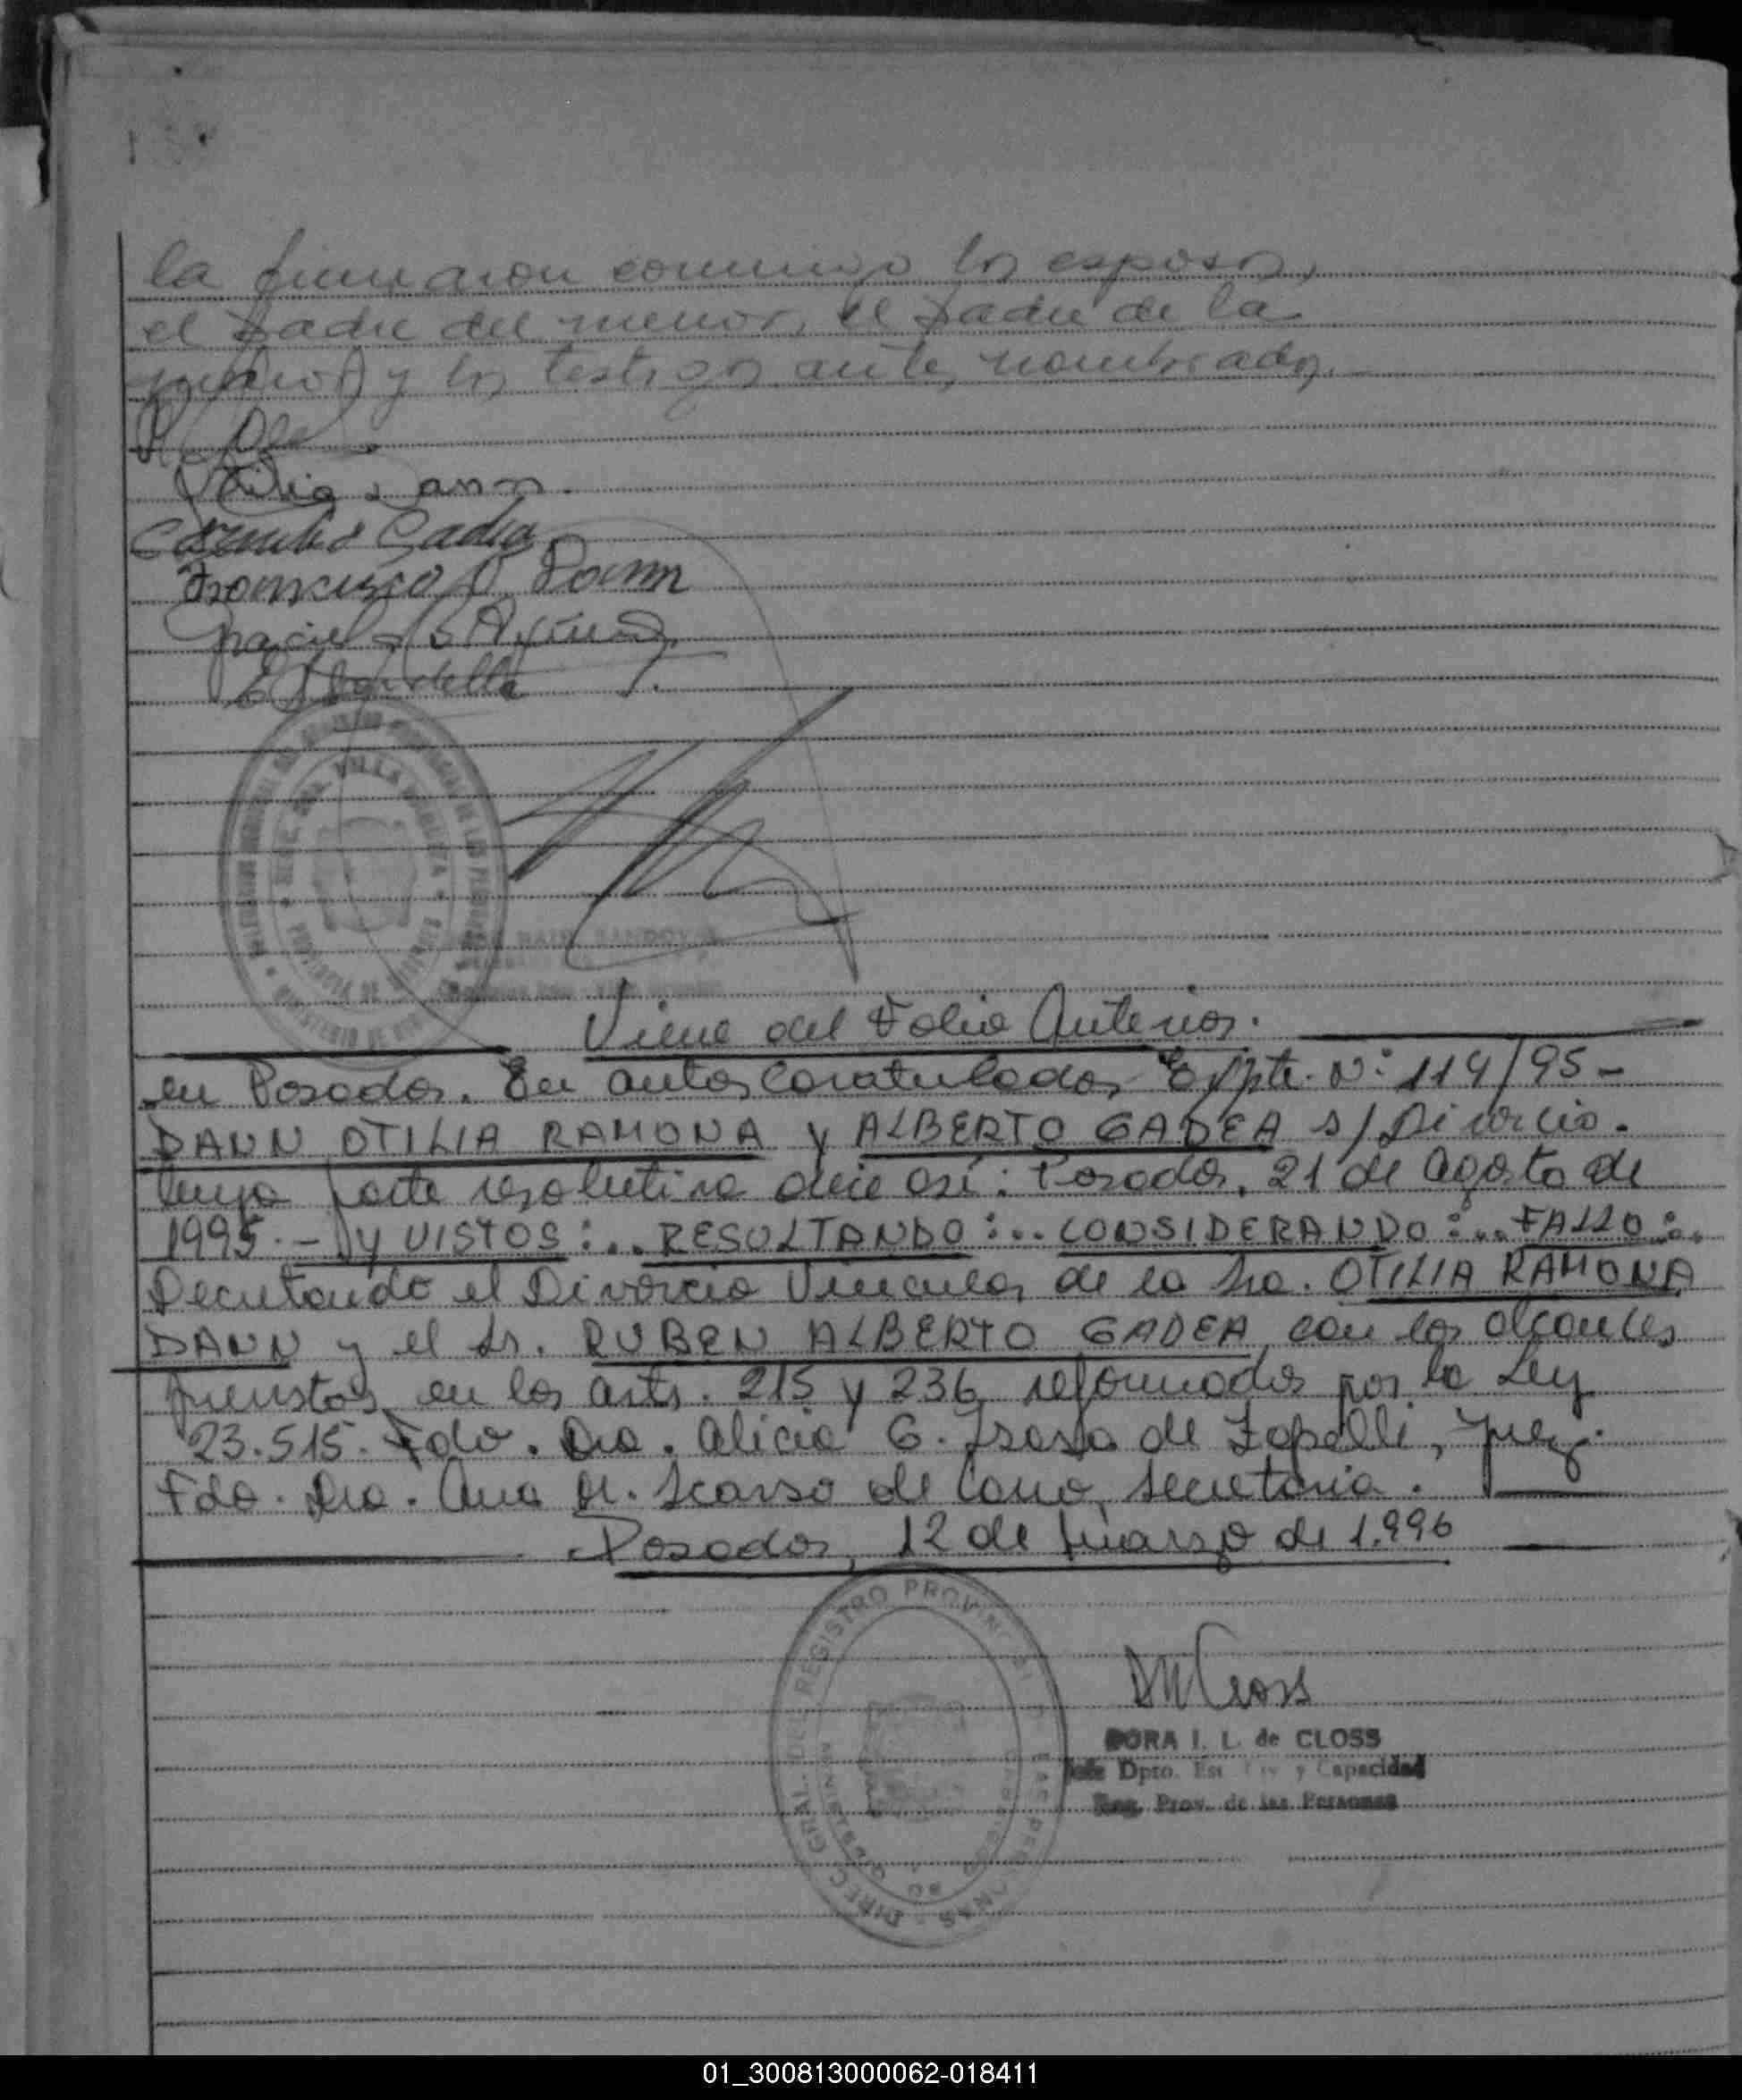 la firmaron conmigo los esposos,
el padre del menor, el padre de la
y los testigos antes nombrados.
Otilia Dann
Gadea
Francisco D. Dann
VILLA
PROVINCIA DE
MINISTERIO DE
RAUL SANDOVAL
Viene del Folio Anterior.
en Posadas. En autos Caratulados Expte. Nº 114/95 -
DANN OTILIA RAMONA y ALBERTO GADEA s/ Divorcio.
Cuya parte resolutiva dice así: Posadas, 21 de Agosto de
1995. - y VISTOS:.. RESULTANDO:.. CONSIDERANDO:.. FALLO:..
Decretando el Divorcio Vincular de la Sra. OTILIA RAMONA
DANN y el Sr. RUBEN ALBERTO GADEA con los alcances
previstos en los arts. 215 y 236 reformados por la Ley
23.515. Fdo. Dra. Alicia G. de Zapelli, Juez.
Fdo. Dra. Ana M. Scarso de Cano, Secretaria.
Posadas, 12 de Marzo de 1.996
DIRECC. GRAL. DEL REGISTRO PROVINCIAL DE LAS PERSONAS
DORA I. L. de CLOSS
Jefe Dpto. Est. Civ. y Capacidad
Reg. Prov. de las Personas
01_300813000062-018411